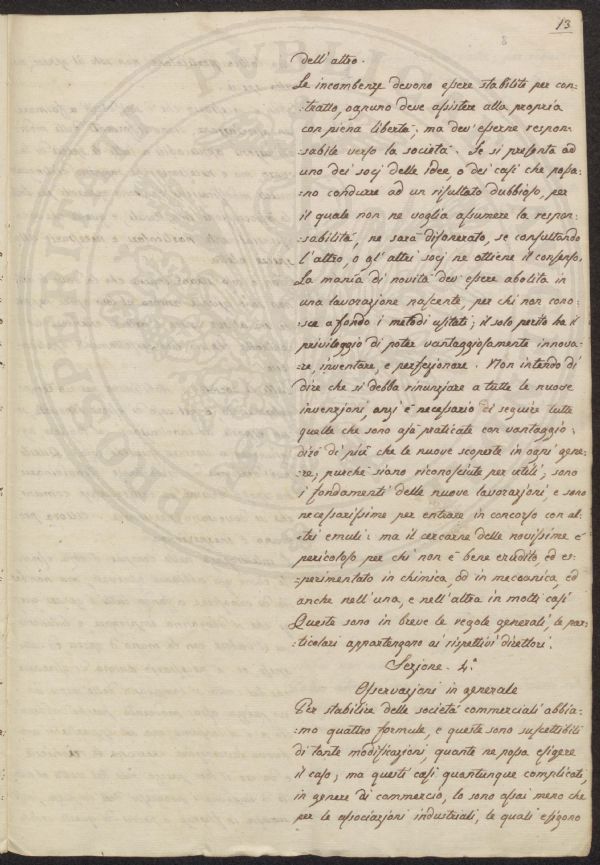 13
dell' altro.
Le incombenze devono essere stabilite per con=
=tratto, ognuno deve assistere alla propria
con piena libertà; ma dev' esserne respon=
=sabile verso la società. Se si presenta ad
uno dei socj delle idee, o dei casi che possa=
=no condurre ad un risultato dubbioso, per
il quale non ne voglia assumere la respon=
=sabilità, ne sarà disonerato, se consultando
l'altro, o gl' altri socj ne ottiene il consenso.
La manìa di novità dev' essere abolita in
una lavorazione nascente, per chi non cono=
=sce a fondo i metodi usitati; il solo perito ha il
privileggio di poter vantaggiosamente innova=
=re, inventare, e perfezionare. Non intendo di
dire che si debba rinunziare a tutte le nuove
invenzioni, anzi è necessario di seguire tutte
quelle che sono già praticate con vantaggio:
dirò di più che le nuove scoperte in ogni gene=
=re, purchè siano riconosciute per utili, sono
i fondamenti delle nuove lavorazioni, e sono
necessarissime per entrare in concorso con al=
=tri emuli: ma il cercarne delle novissime è
pericoloso per chi non è bene erudito, ed es=
=perimentato in chimica, od in meccanica, ed
anche nell' una, e nell' altra in molti casi
Queste sono in breve le regole generali, le par=
=ticolari appartengono ai rispettivi direttori.
Sezione 4.a
Osservazioni in generale
Per stabilire delle società commerciali abbia=
=mo quattro formule, e queste sono suscettibili
di tante modificazioni, quante ne possa esigere
il caso; ma questi casi quantunque complicati,
in genere di commercio, lo sono assai meno che
per le associazioni industriali, le quali esigono